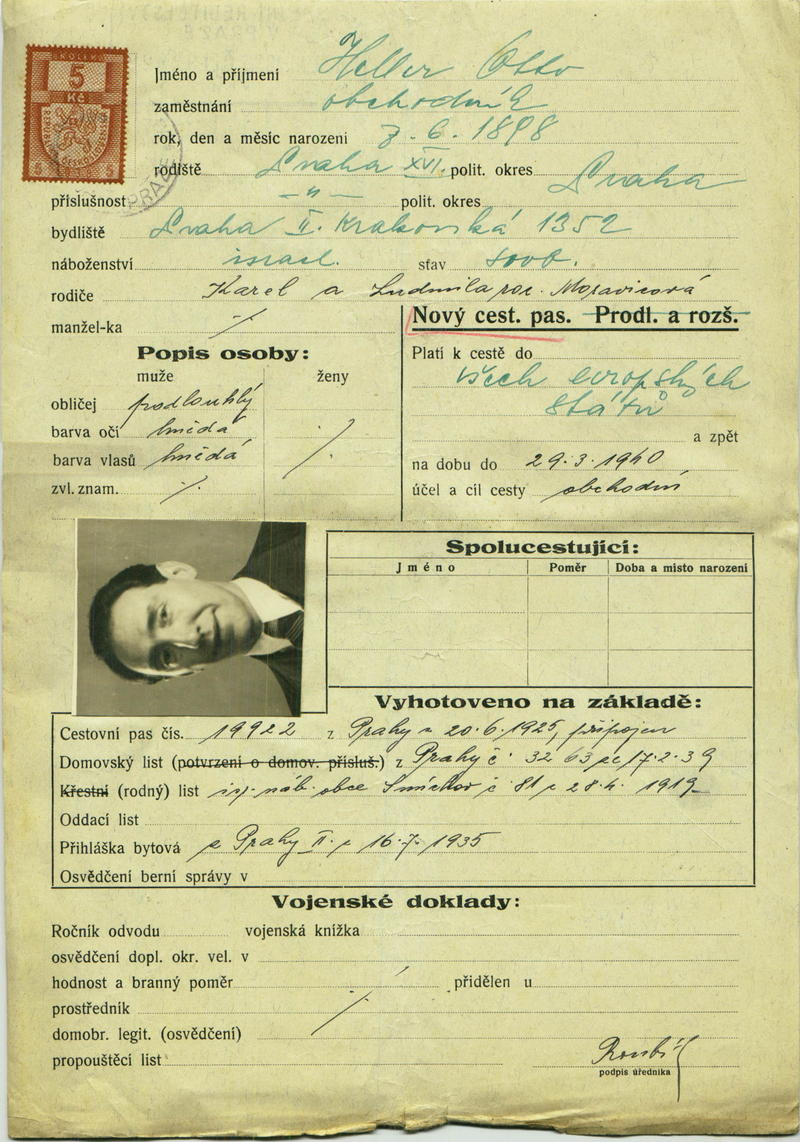 KOLEK
5
Kč
REPUBLIKA ČESKOSLOVENSKÁ
PRAZE
Jméno a příjmení Heller Otto
zaměstnání obchodník
rok, den a měsíc narozeni 7. 6. 1898
rodiště Praha XVI. polit. okres Praha
příslušnost — " — polit. okres
bydliště Praha II. Krakovská 1352
náboženství israel. stav svob.
rodiče Karel a Ludmila roz. Moravicová
manžel-ka ·/·
Nový cest. pas. Prodl. a rozš.
Popis osoby:
muže ženy
obličej podlouhlý
barva očí hnědá ·/·
barva vlasů hnědá
zvl. znam. ·/·
Platí k cestě do
všech evropských
států
a zpět
na dobu do 29.3.1940
účel a cíl cesty obchodní
Spolucestující:
Jméno Poměr Doba a misto narozeni
Vyhotoveno na základě:
Cestovní pas čís. 19922 z Prahy z 20.6.1925, připojen
Domovský list (potvrzení o domov. přísluš.) z Prahy č. 3263 ze 17.2.39
Křestní (rodný) list isr. náb. obce Smíchov č. 81 z 28.4. 1919
Oddací list
Přihláška bytová z Prahy II. z 16.7.1935
Osvědčení berní správy v
Vojenské doklady:
Ročník odvodu vojenská knížka
osvědčení dopl. okr. vel. v
hodnost a branný poměr přidělen u
prostředník ·/·
domobr. legit. (osvědčení)
propouštěcí list
podpis úředníka